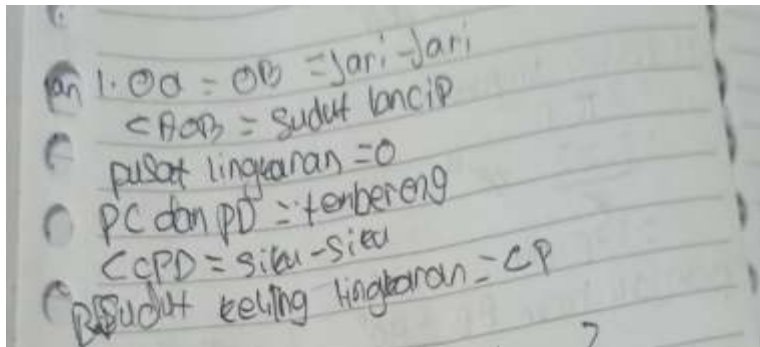 1. OA = OB = Jari-Jari
<AOB = Sudut lancip
pusat lingkaran = O
PC dan PD = tembereng
<CPD = siku-siku
Sudut keliling lingkaran = <P